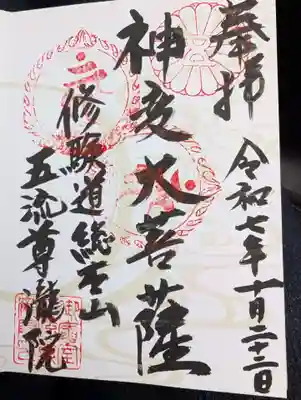 奉拝
令和七年十月二十二日
神変大菩薩
修験道総本山
五流尊瀧院